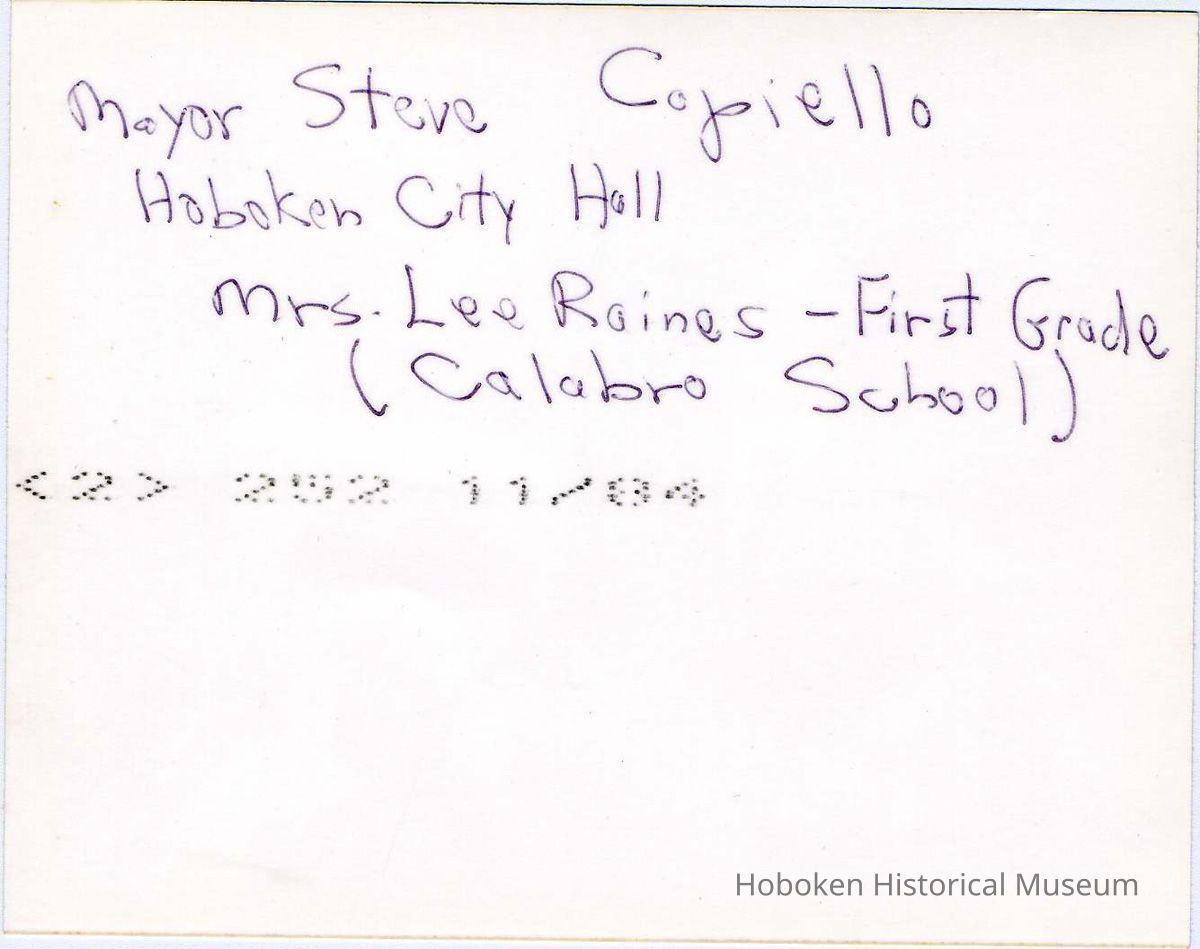 Mayor Steve Capiello
Hoboken City Hall
Mrs. Lee Raines - First Grade
(Calabro School)
<2> 252 11/84
Hoboken Historical Museum